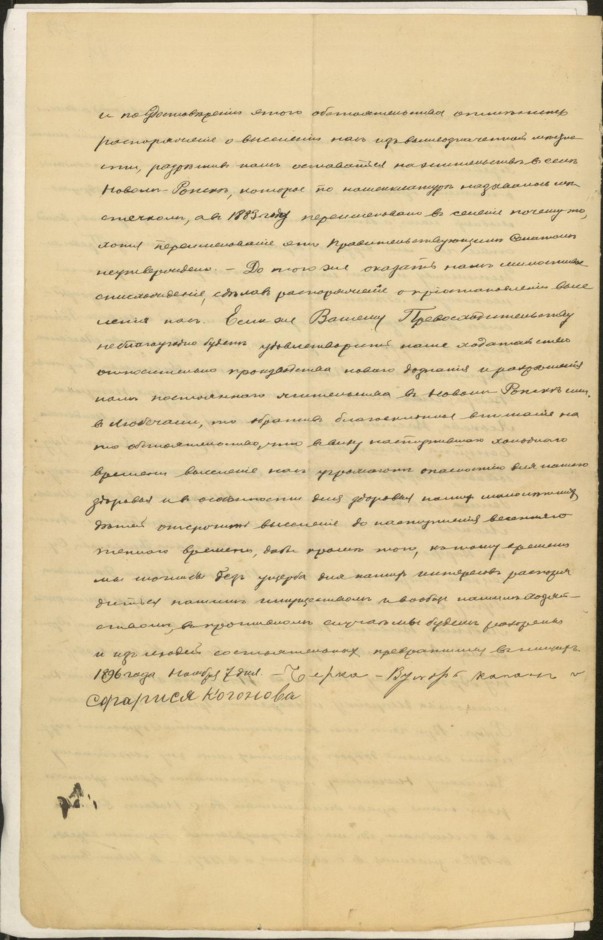 и по удостоверении этого обстоятельства отменить
распоряжение о выселении нас из вышеозначенной местно
сти, разрешив нам оставаться на жительстве в селе
Новом-Ропске, которое по номенклатуре называлось ме
стечком, а в 1883 году переименовано в селение почему-то,
хотя переименование это Правительствующим Сенатом
неутверждено. – До того же оказать нам милостивое
снисхождение, сделав распоряжение о приостановлении высе
ления нас. Если же Вашему Превосходительству
неблагоугодно будет удовлетворить наше ходатайство
относительно производства нового дознания и разрешения
нам постоянного жительства в Новом-Ропске или
в Любечанах, то обратив благосклонное внимание на
то обстоятельство, что в виду наступившего холодного
времени выселение нас угрожает опасностью для нашего
здоровья и в особенности для здоровья наших малолетних
детей отсрочить выселение до наступления весеннего
теплого времени, дабы кроме того, к этому времени
мы могли бы без ущерба для наших интересов распоря
диться нашим имуществом и вообще нашим хозяй
ством, в противном случае мы будем разорены
и из людей состоятельных превратимся в нищих
1896 года Ноября 7 дня – Черка –
Сфарися Когонова